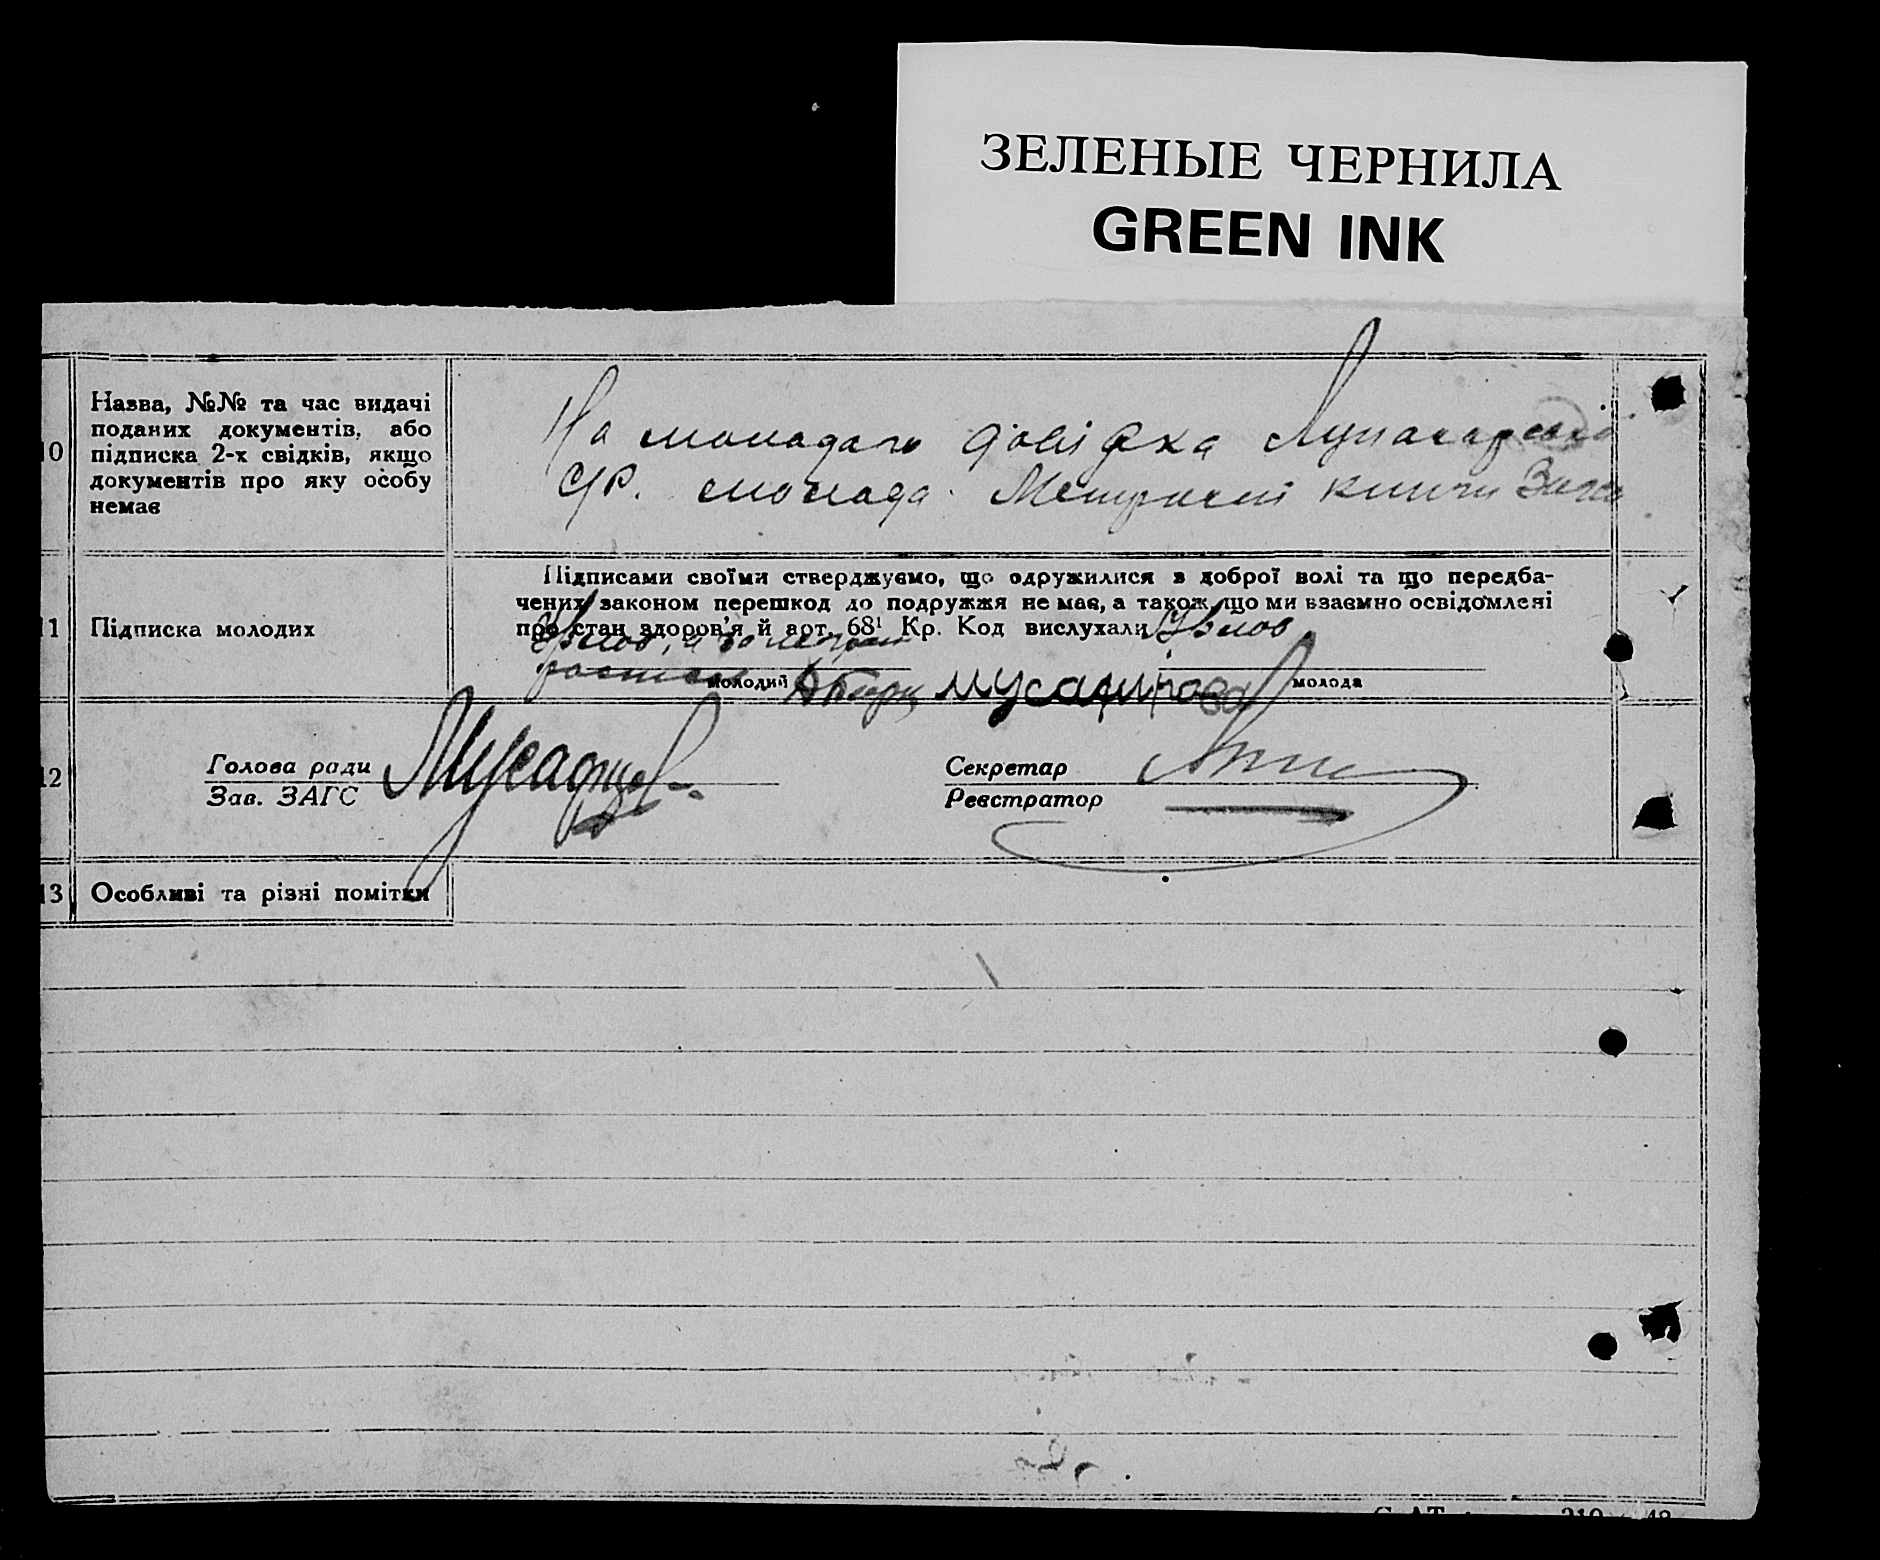 ЗЕЛЕНЫЕ ЧЕРНИЛА
GREEN INK
10
Назва, №№ та час видачі
поданих документів, або
підписка 2-х свідків, якщо
документів про яку особу
немає
На молодого довідка
С/Р. молода Метричні книги Загс
11
Підписка молодих
Підписами своїми стверджуємо, що одружилися в доброї волі та що передба-
чених законом перешкод до подружжя не має, а також що ми взаємно освідомлені
про стан здоров'я й арт. 68¹ Кр. Код вислухали
молодий
мусафирова
молода
12
Голова ради
Зав. ЗАГС
Секретар
Реєстратор
13
Особливі та різні помітки